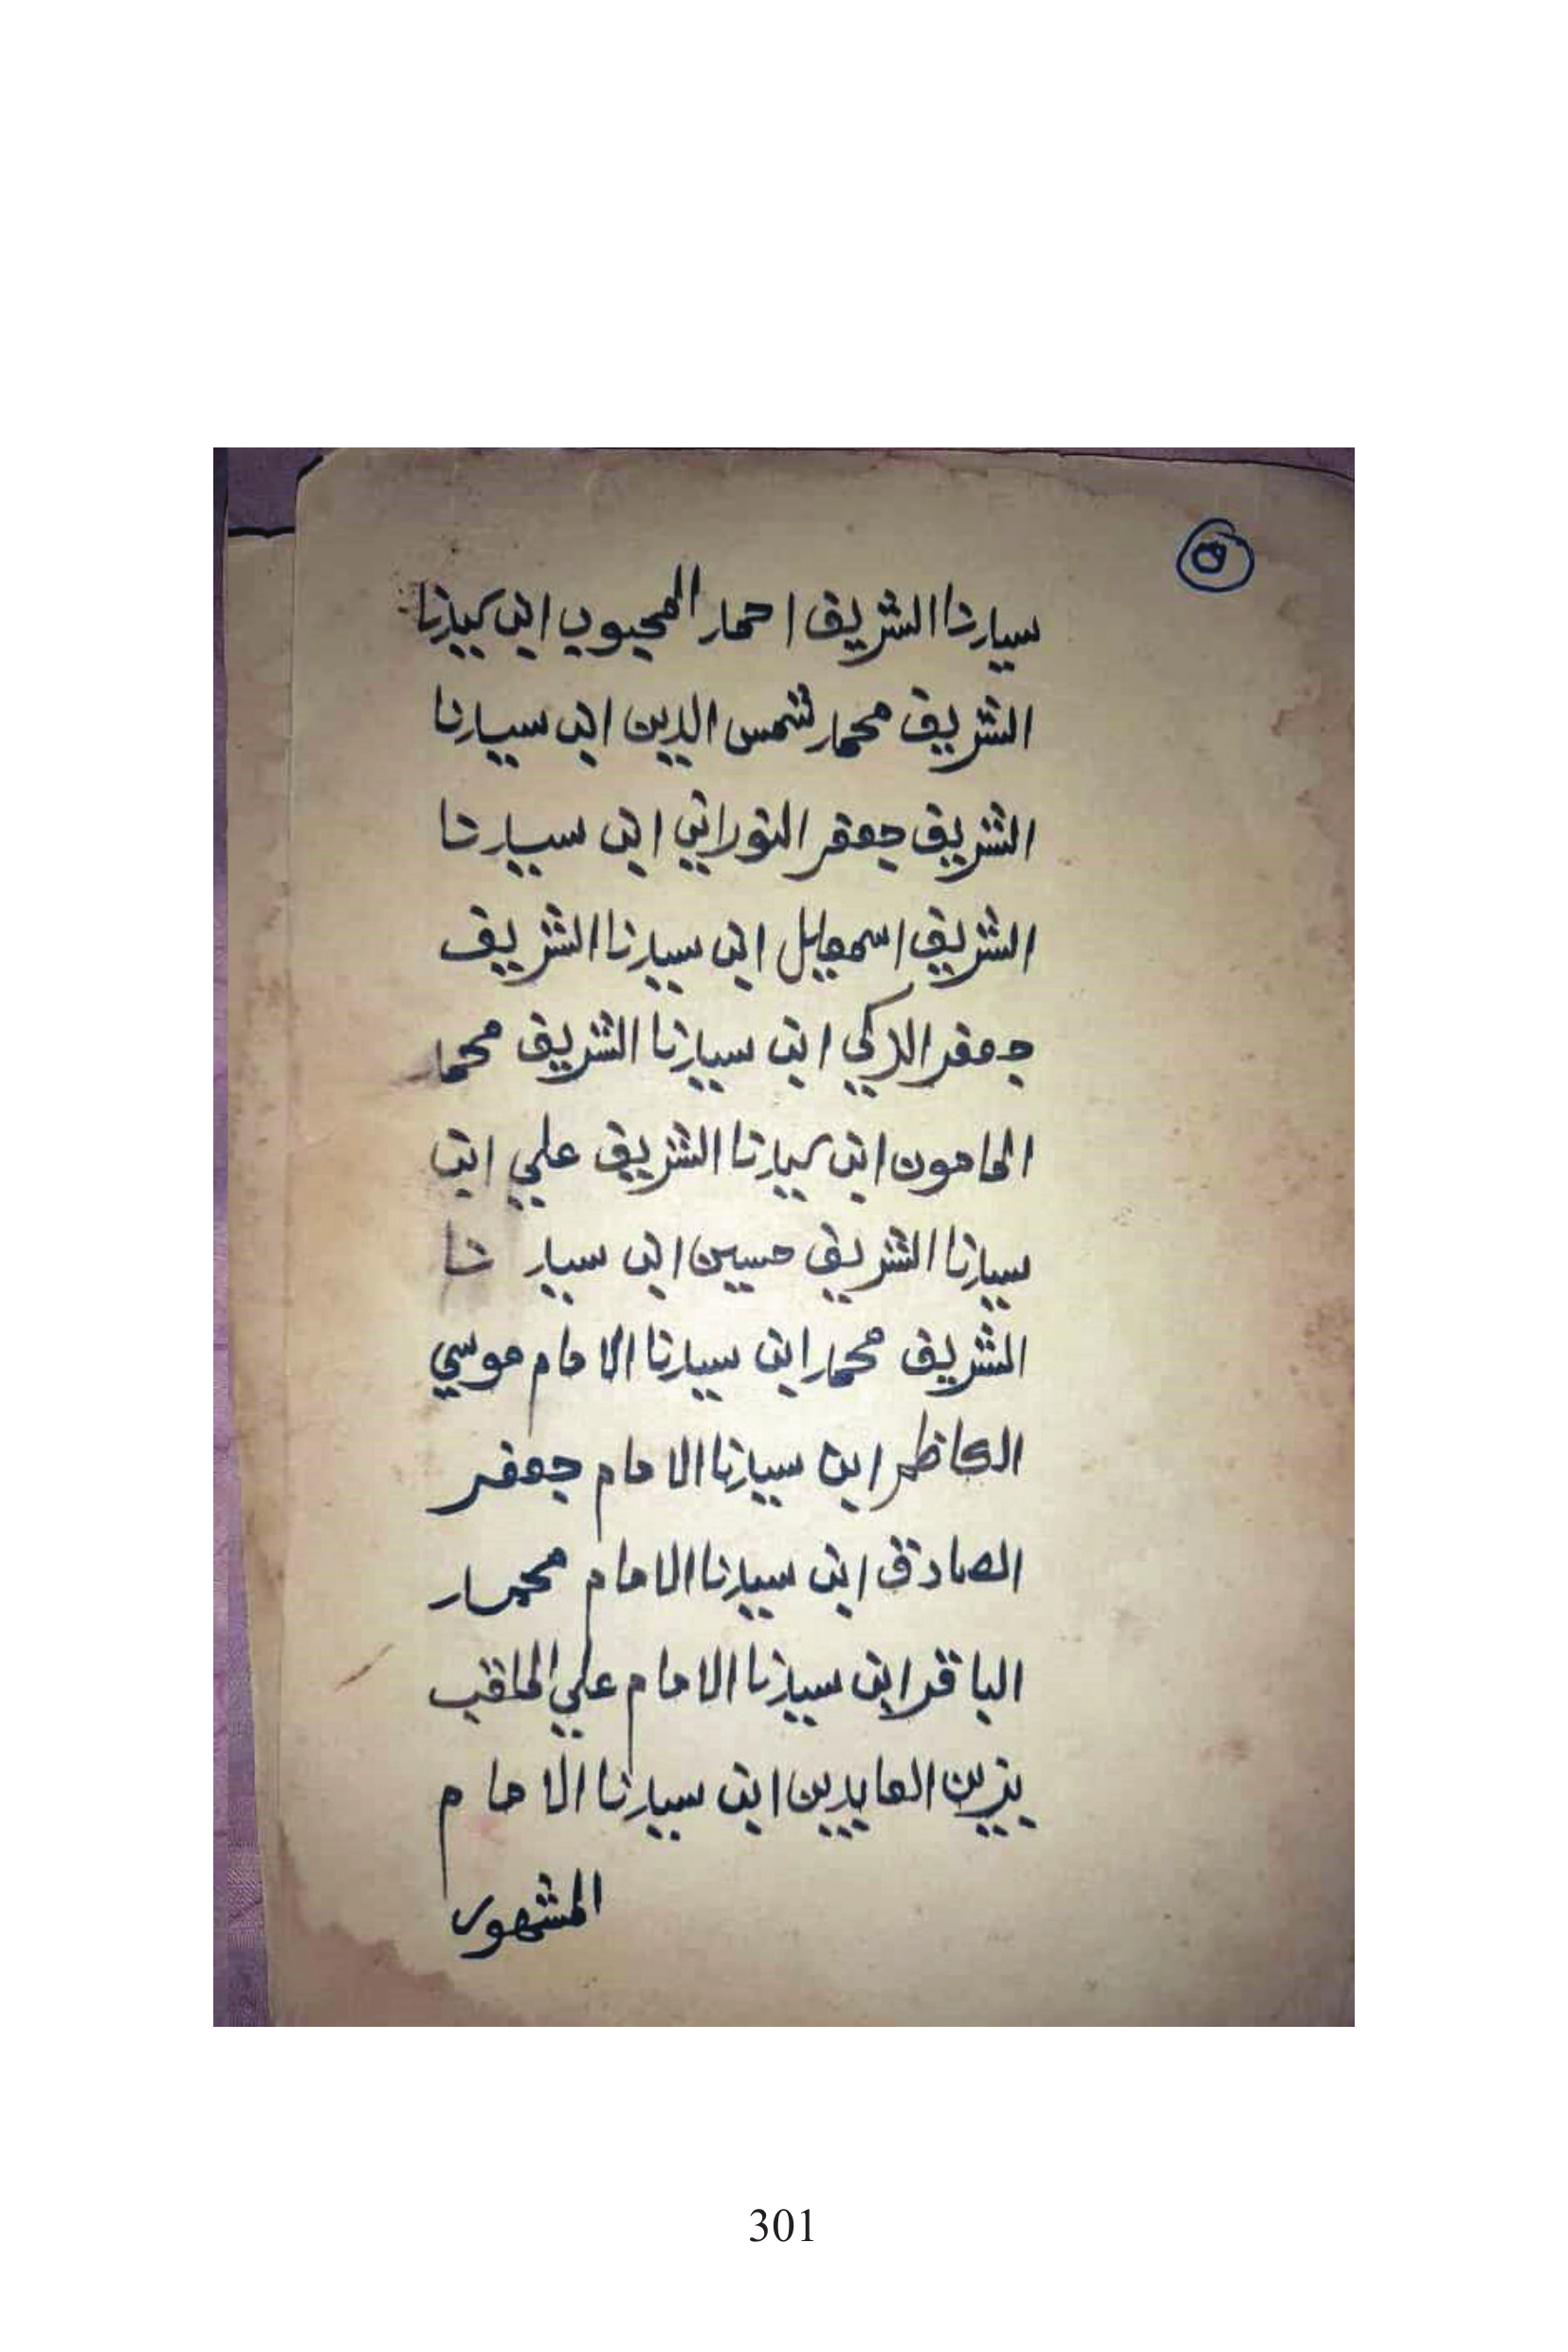 ٥
سيدنا الشريف احمد المحبوب ابن سيدنا
الشريف محمد شمس الدين ابن سيدنا
الشريف جعفر النوراني ابن سيدنا
الشريف اسمعيل ابن سيدنا الشريف
جعفر الزكي ابن سيدنا الشريف محمد
المامون ابن سيدنا الشريف علي ابن
سيدنا الشريف حسين ابن سيدنا
الشريف محمد ابن سيدنا الامام موسي
الكاظم ابن سيدنا الامام جعفر
الصادق ابن سيدنا الامام محمد
الباقر ابن سيدنا الامام علي الملقب
بزين العابدين ابن سيدنا الامام
المشهور
301